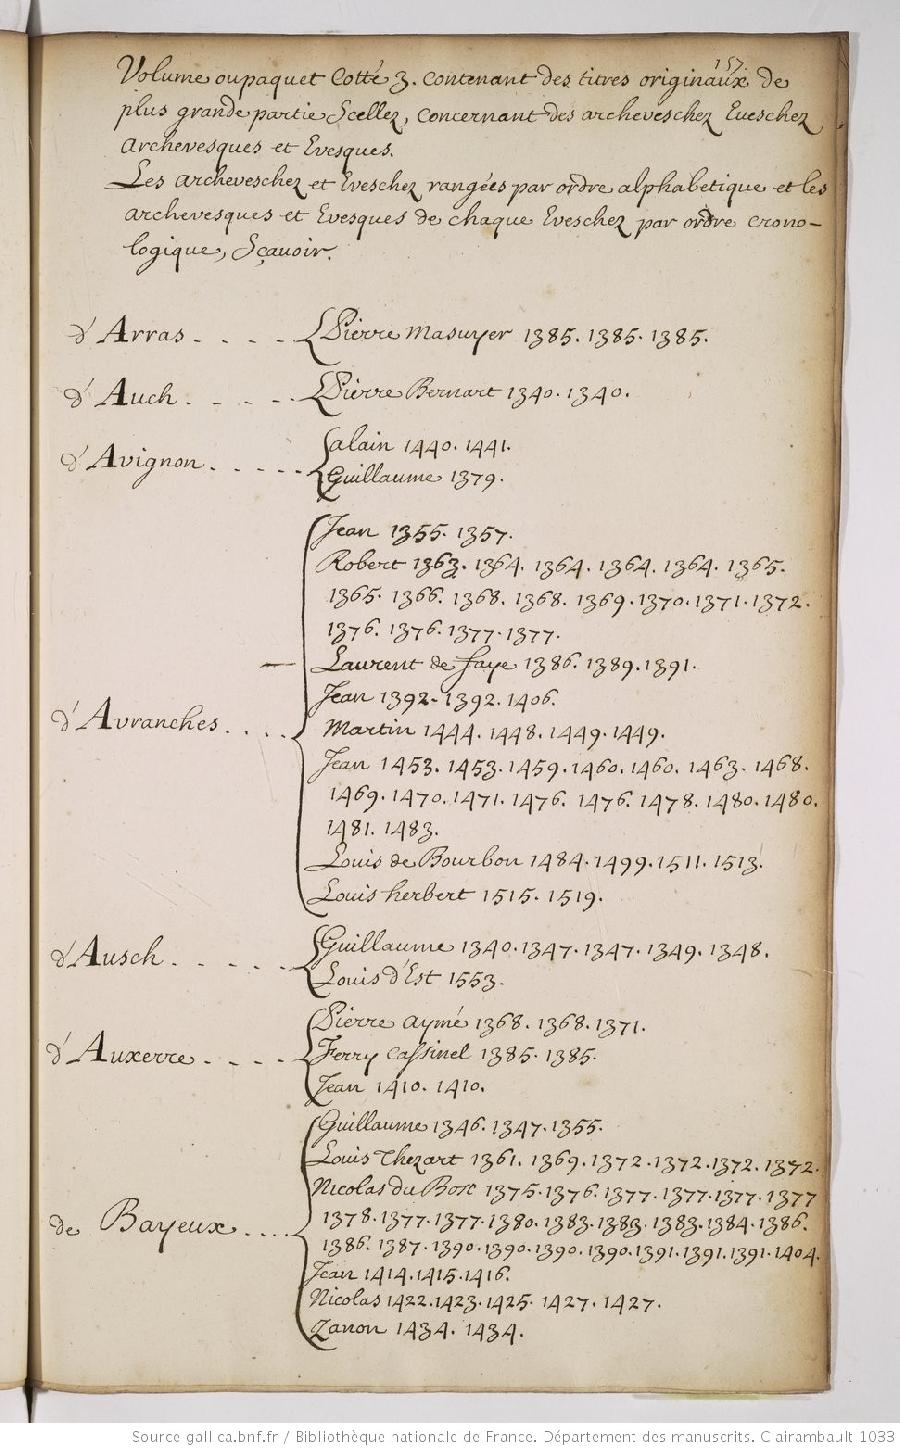 157.
Volume ou paquet Cotté 3. contenant des titres originaux de
plus grande partie Scellez, concernant des archeveschez Eveschez
archevesques et Evesques.
Les archeveschez et Eveschez rangées par ordre alphabetique et les
archevesques et Evesques de chaque Eveschez par ordre crono-
logique, Sçavoir.
d'Arras - - - - Pierre Masuyer 1385. 1385. 1385.
d'Auch - - - - Pierre Bernart 1340. 1340.
d'Avignon - - - - - alain 1440. 1441.
Guillaume 1379.
Jean 1355. 1357.
Robert 1363. 1364. 1364. 1364. 1364. 1365.
1365. 1366. 1368. 1368. 1369. 1370. 1371. 1372.
1376. 1376. 1377. 1377.
Laurent de faye 1386. 1389. 1391.
Jean 1392. 1392. 1406.
d'Avranches . . . . Martin 1444. 1448. 1449. 1449.
Jean 1453. 1453. 1459. 1460. 1460. 1463. 1468.
1469. 1470. 1471. 1476. 1476. 1478. 1480. 1480.
1481. 1483.
Louis de Bourbon 1484. 1499. 1511. 1513.
Louis herbert 1515. 1519.
d'Ausch - - - - - Guillaume 1340. 1347. 1347. 1349. 1348.
Louis d'Est 1553.
Pierre aymé 1368. 1368. 1371.
d'Auxerre - - - - Ferry Cassinel 1385. 1385.
Jean 1410. 1410.
Guillaume 1346. 1347. 1355.
Louis Thezart 1361. 1369. 1372. 1372. 1372. 1372.
Nicolas du Bosc 1375. 1376. 1377. 1377. 1377. 1377
de Bayeux . . . . 1378. 1377. 1377. 1380. 1383. 1383. 1383. 1384. 1386.
1386. 1387. 1390. 1390. 1390. 1390. 1391. 1391. 1391. 1404.
Jean 1414. 1415. 1416.
Nicolas 1422. 1423. 1425. 1427. 1427.
Zanon 1434. 1434.
Source gallica.bnf.fr / Bibliothèque nationale de France. Département des manuscrits. Clairambault 1033